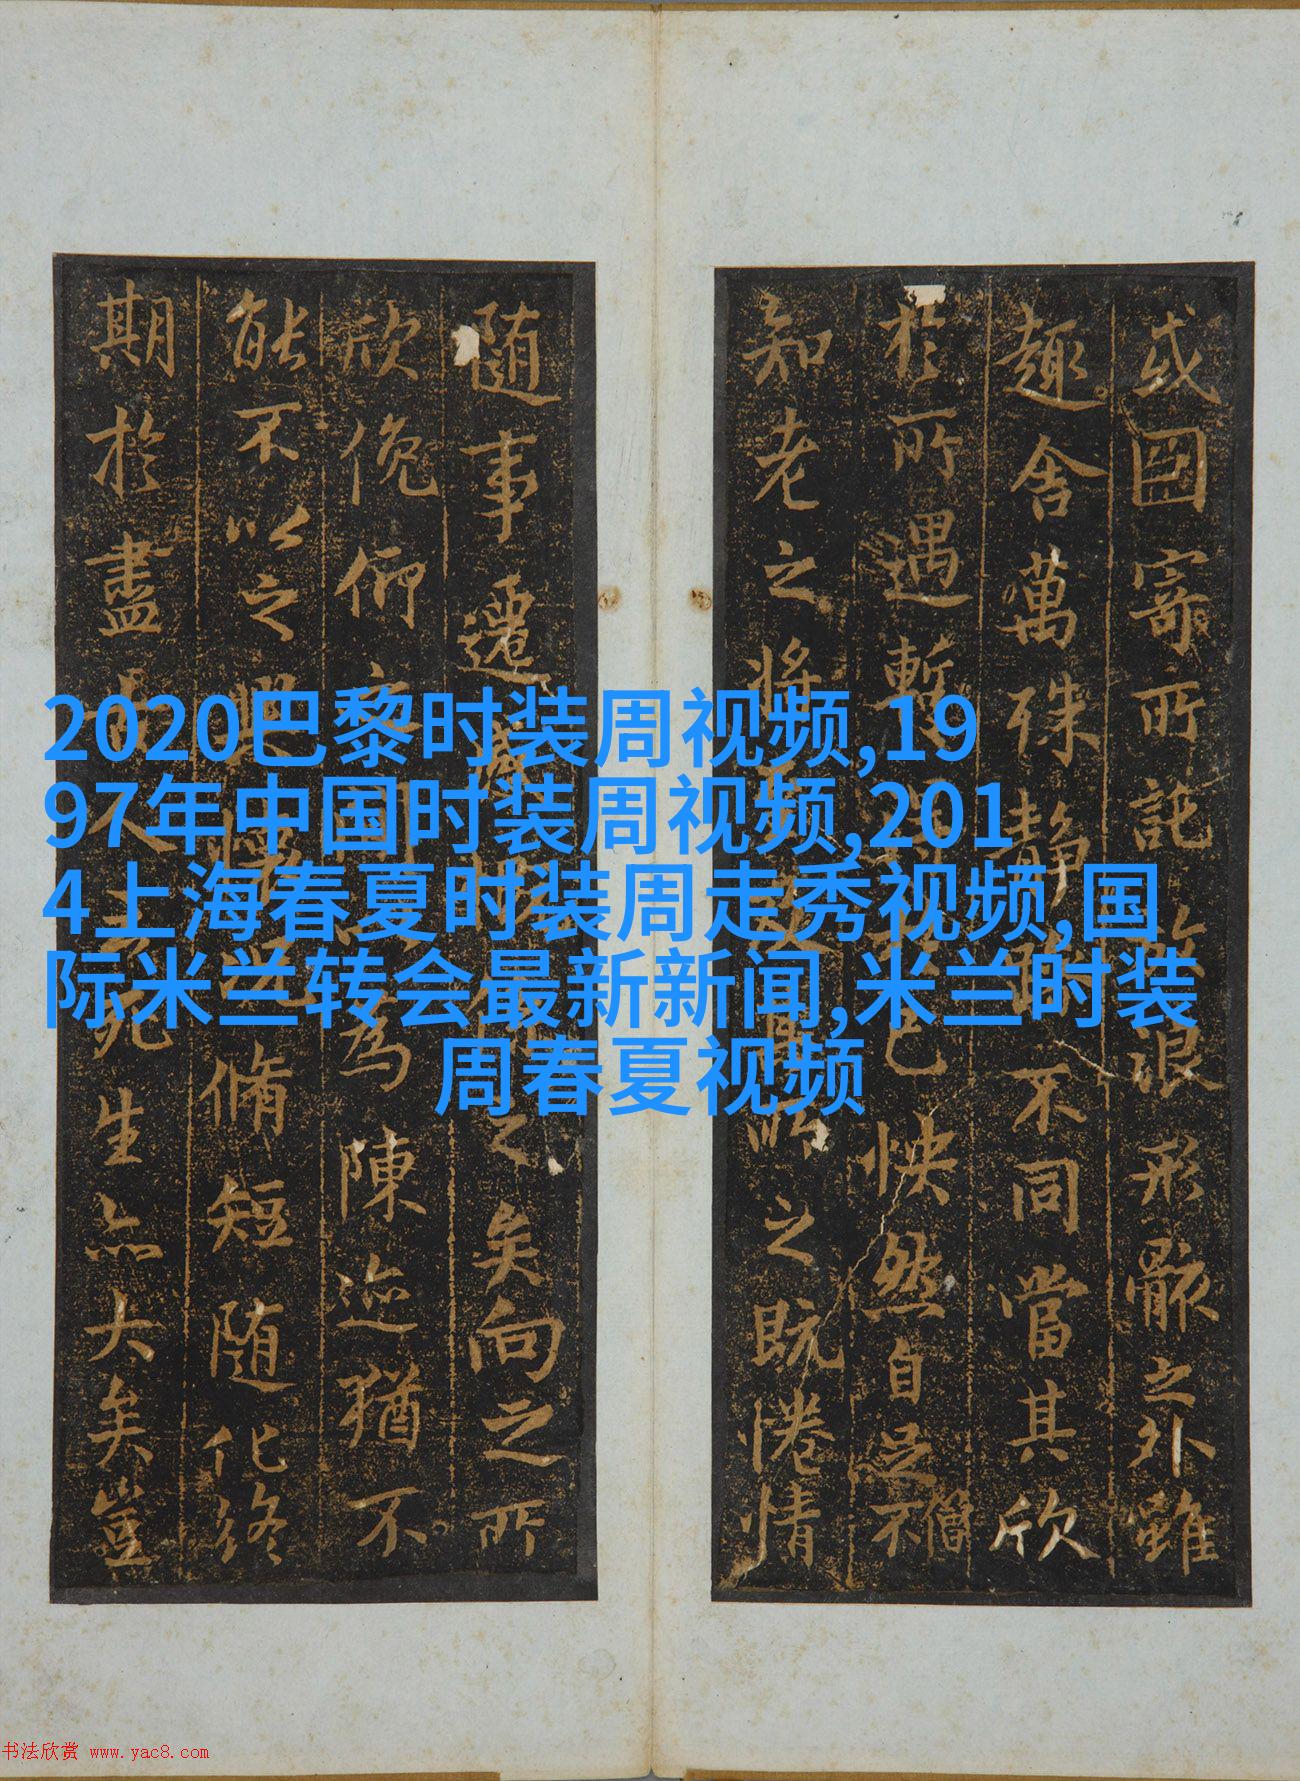 2020巴黎时装周视频,19
97年中国时装周视频,201
4上海春夏时装周走秀视频,国
际米兰转会最新新闻,米兰时装
周春夏视频
或因寄所託浪形骸之外雖
趣舍萬殊静躁不同當其欣
於所遇暫得己怏然自足不僧
知老之將所之既惓情
随事遷感之矣向之所
欣俛仰間為陳迹猶不
能不以之興懷況脩短随化終
期於盡古人云死生亦大矣豈
书法欣赏 www.yac8.com